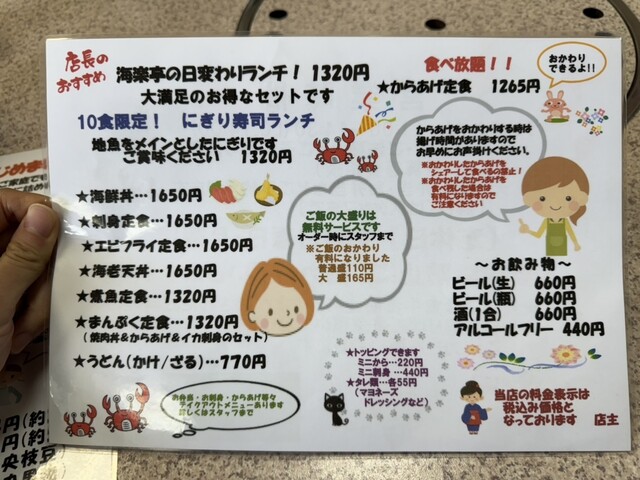 店長の
おすすめ
海楽亭の日変わりランチ! 1320円
大満足のお得なセットです
10食限定! にぎり寿司ランチ
地魚をメインとしたにぎりです
ご賞味ください 1320円
★海鮮丼…1650円
★刺身定食…1650円
★エビフライ定食…1650円
★海老天丼…1650円
★煮魚定食…1320円
★まんぷく定食…1320円
(焼肉丼&からあげ&イカ刺身のセット)
★うどん(かけ/ざる)…770円
お弁当・お刺身・からあげ等々
テイクアウトメニューあります
詳しくはスタッフまで
ご飯の大盛りは
無料サービスです
オーダー時にスタッフまで
※ご飯のおかわり
有料になりました
普通盛110円
大 盛165円
食べ放題!!
おかわり
できるよ!!
★からあげ定食 1265円
からあげをおかわりする時は
揚げ時間がありますので
お早めにお声掛けください。
※おかわりしたからあげを
シェアーして食べるの禁止!
※おかわりしたからあげを
食べ残した場合は
有料になりますので
ご注意ください
~お飲み物~
ビール(生) 660円
ビール(瓶) 660円
酒(1合) 660円
アルコールフリー 440円
★トッピングできます
ミニから…220円
ミニ刺身 …440円
★タレ類…各55円
(マヨネーズ
ドレッシングなど)
当店の料金表示は
税込み価格と
なっております
店主